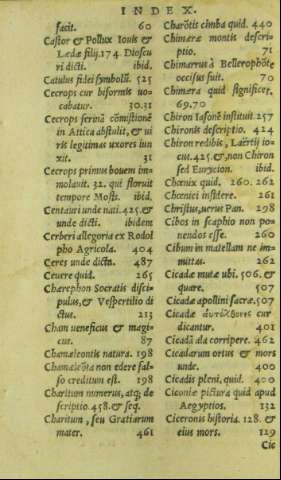 INDEX.
facit. 60
Castor & Pollux Iouis &
Lædæ filij. 174. Dioscu
ri dicti. ibid.
Catulus fidei symbolū. 525
Cecrops cur biformis uo-
cabatur. 30.31
Cecrops feriuā cōmistionē
in Attica abstulit, & ui
ris legitimas uxores iun
xit. 31
Cecrops primus bouem im-
molauit. 32. qui floruit
tempore Mosis. ibid.
Centauri unde nati. 425. &
unde dicti. ibidem
Cerberi allegoria ex Rodol
pho Agricola. 404
Ceres unde dicta. 487
Ceuere quid. 265
Chærephon Socratis disci-
pulus, & Vespertilio di
ctus. 213
Cham ueneficus & magi-
cus. 87
Chamæleontis natura. 198
Chamæleōta non edere fal-
so creditum est. 198
Charitum numerus, atq; de
scriptio. 458. & seq.
Charitum, seu Gratiarum
mater. 461
Charōtis cimba quid. 440
Chimæræ montis descri-
ptio. 71
Chimærra à Bellerophōte
occisus fuit. 70
Chimæra quid significet.
69.70
Chiron Iasonē instituit. 257
Chironis descriptio. 424
Chiron redibis, Laërtij io-
cus. 425. &, non Chiron
sed Eurycion. ibid.
Chœnix quid. 260. 262
Chœnici insidere. 261
Christus, uerus Pan. 298
Cibos in scaphio non po-
nendos esse. 260
Cibum in matellam ne im-
mittas. 262
Cicadæ mutæ ubi. 506. &
quare. 507
Cicadæ apollini sacræ. 507
Cicadæ cur
dicantur. 401
Cicadā ala corripere. 462
Cicadarum ortus & mors
unde. 400
Cicadis pleni, quid. 400
Ciconiæ pictura quid apud
Aegyptios. 132
Ciceronis historia. 128. &
eius mors. 129
Cic